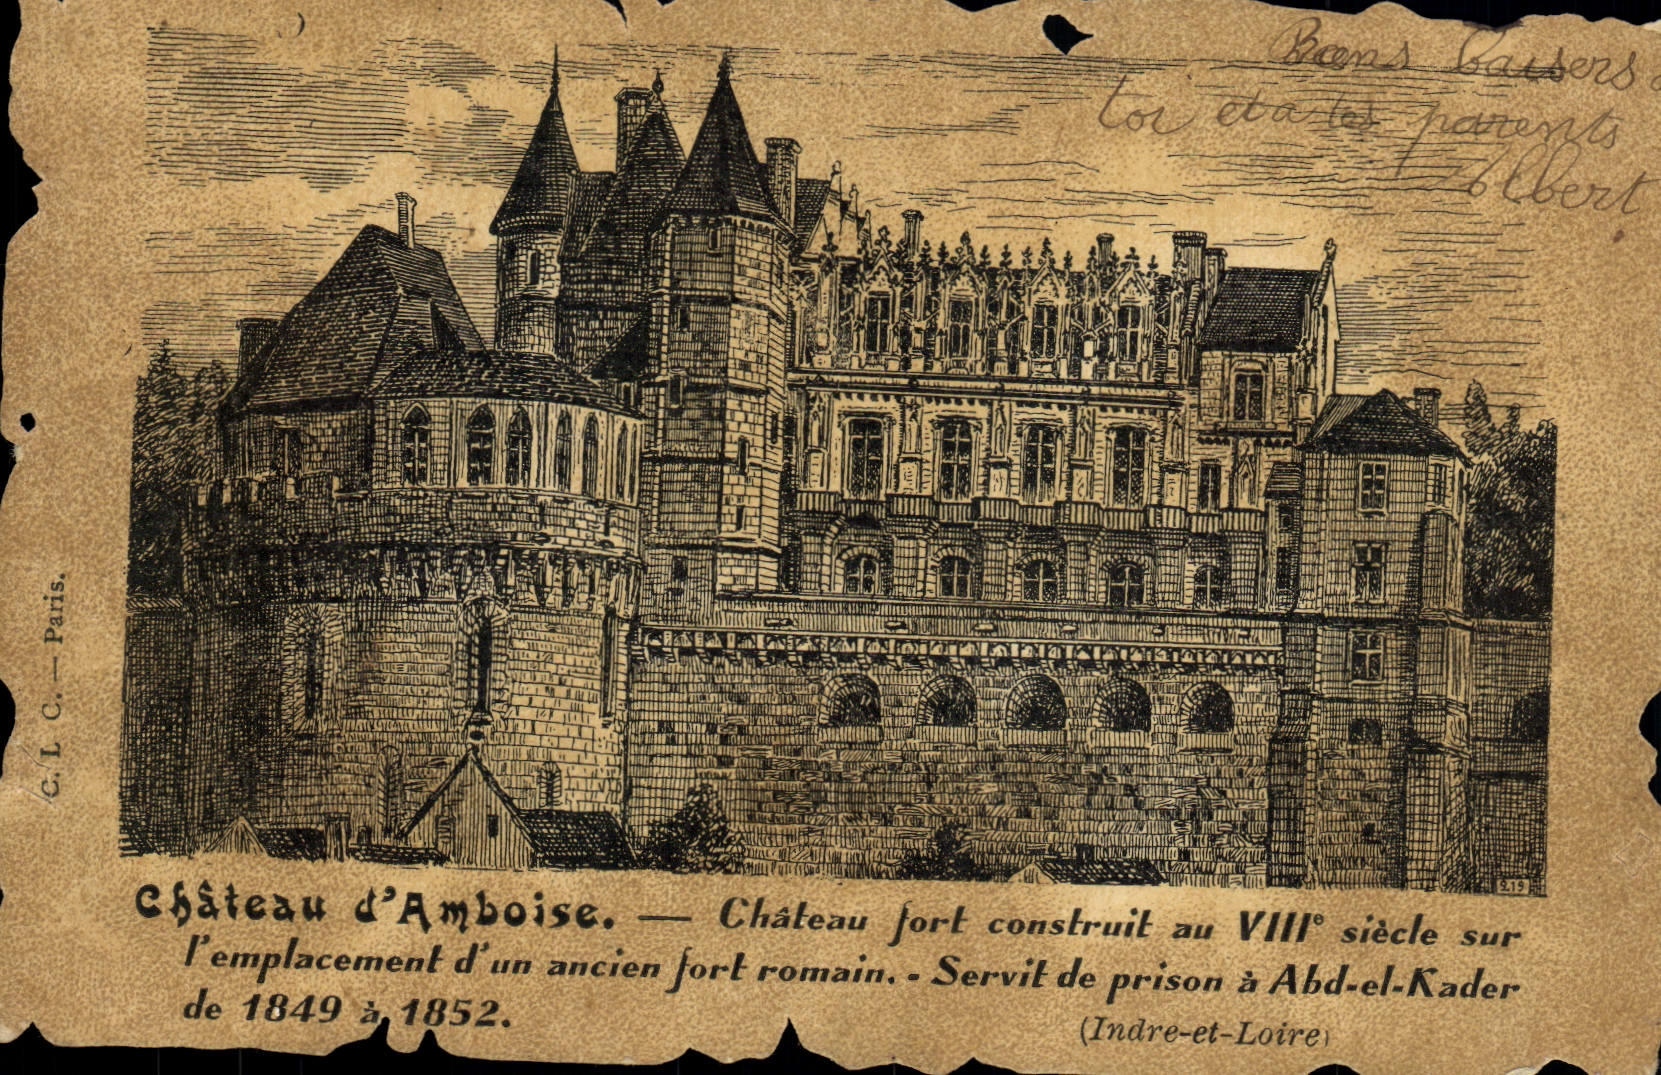 Bons baisers à
toi et a tes parents
Albert
C. L. C. — Paris.
219
Château d'Amboise. — Château fort construit au VIIIe siècle sur
l'emplacement d'un ancien fort romain. - Servit de prison à Abd-el-Kader
de 1849 à 1852.
(Indre-et-Loire)